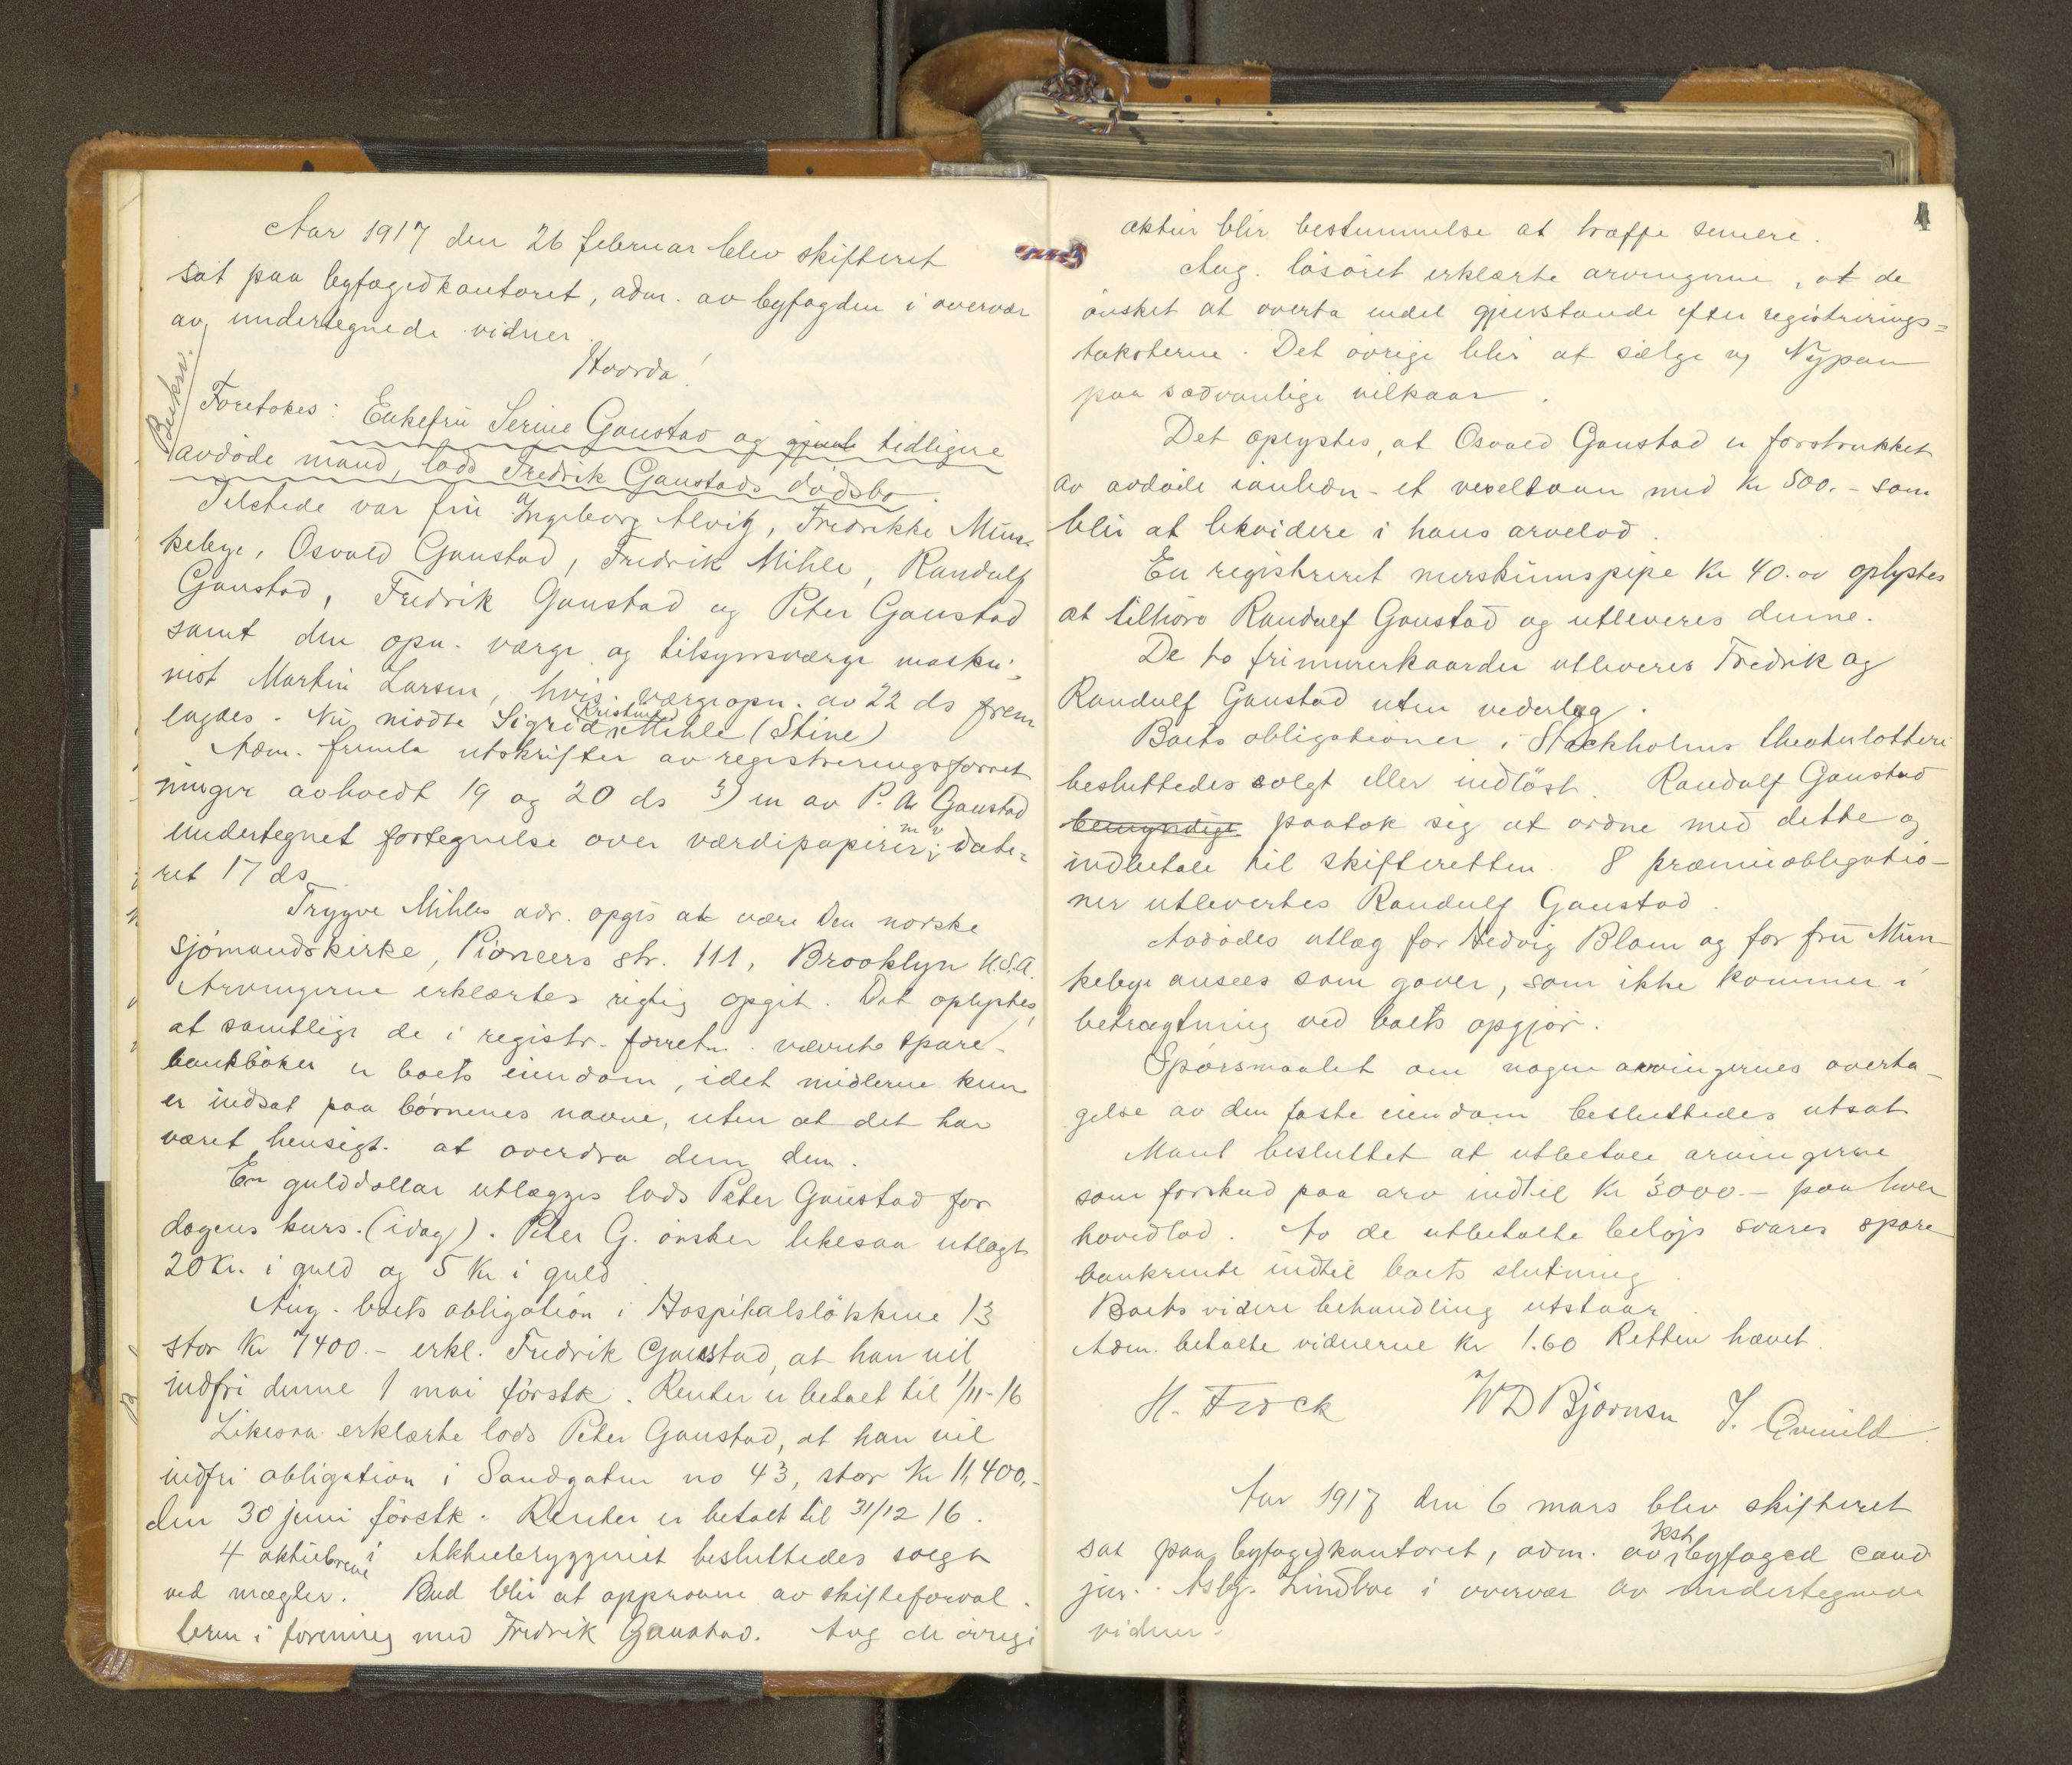 Aar 1917 den 26 februar blev skifteret
sat paa byfogedkontoret, adm. av byfogden i overvær
av undertegnede vidner
Hvorda!
Beskr.
Foretokes: Enkefru Serine Gaustad og gjenl tidligere
avdöde mand, lods Fredrik Gaustads dödsbo.
Tilstede var fru Ingeborg Alvig, Fredrikke Mun-
kebye, Osvald Gaustad, Fredrik Mihle, Randulf
Gaustad, Fredrik Gaustad og Peter Gaustad
samt den opn. værge og tilsynsværge maski-
nist Martin Larsen, hvis værgeopn. av 22 ds frem
lagdes. Nu mödte Sigrid Kristine Mihle (Stine)
Adm. fremla utskrifter av registreringsforret
ninger avholdt 19 og 20 ds 3) en av P. A. Gaustad
undertegnet fortegnelse over værdipapirer m v date-
ret 17 ds
Trygve Mihles adr. opgis at være Den norske
sjömandskirke, Pioneers str. 111, Brooklyn U.S.A.
Arvingerne erklærtes rigtig opgit. Det oplystes,
at samtlige de i registr. forretn. nævnte spare-
bankböker er boets eiendom, idet midlerne kun
er indsat paa börnenes navne, uten at det har
været hensigt at overdra dem dem.
En gulddollar utlægges lods Peter Gaustad for
dagens kurs. (idag). Peter G. önsker likesaa utlagt
20 Kr. i guld og 5 Kr i guld
Ang. boets obligation i Hospitalslökkene 13
stor Kr 7400.- erkl. Fredrik Gaustad, at han vil
indfri denne 1 mai förstk. Renter er betalt til 1/11-16
Likesaa erklærte lods Peter Gaustad, at han vil
indfri obligation i Sandgaten no 43, stor Kr 11,400.-
den 30 juni förstk. Renter er betalt til 31/12 16.
4 aktiebreve i Aktiebryggeriet besluttedes solgt
ved mægler. Bud blir at approvere av skifteforval-
teren i forening med Fredrik Gaustad. Ang de övrige
4
aktier blir bestemmelse at træffe senere.
Ang. lösöret erklærte arvingerne, at de
önsket at overta endel gjenstande efter registrerings=
taksterne. Det övrige blir at sælge av Nypan
paa sædvanlige vilkaar.
Det oplystes, at Osvald Gaustad er forstrukket
av avdöde i anledn. et vexellaan med Kr 500.- som
blir at likvidere i hans arvelod.
En registreret merskumspipe Kr 40.00 oplystes
at tilhöre Randulf Gaustad og utleveres denne.
De to frimurerkaarder utleveres Fredrik og
Randulf Gaustad uten vederlag.
Boets obligationer i Stockholms theaterlotteri
besluttedes solgt eller indlöst. Randulf Gaustad
bemyndige paatok sig at ordne med dette og
indbetale til skifteretten. 8 præmieobligatio-
ner utlevertes Randulf Gaustad.
Avdödes utlæg for Hedvig Blom og for fru Mun-
kebye ansees som gaver, som ikke kommer i
betragtning ved boets opgjör.
Spörsmaalet om nogen arvingernes overta-
gelse av den faste eiendom besluttedes utsat
Mant besluttet at utbetale arvingerne
som forskud paa arv indtil Kr 3000.- paa hver
hovedlod. Av de utbetalte belöp svares spare
bankrente indtil boets slutning.
Boets videre behandling utstaar.
Adm. betalte vidnerne Kr 1.60 Retten hævet.
H. Frock W D Björnsen J. Qvenild
Aar 1917 den 6 mars blev skifteret
sat paa byfogedkontoret, adm. av kst byfoged cand
jur. Asbj. Lindboe i overvær av undertegnede
vidner.